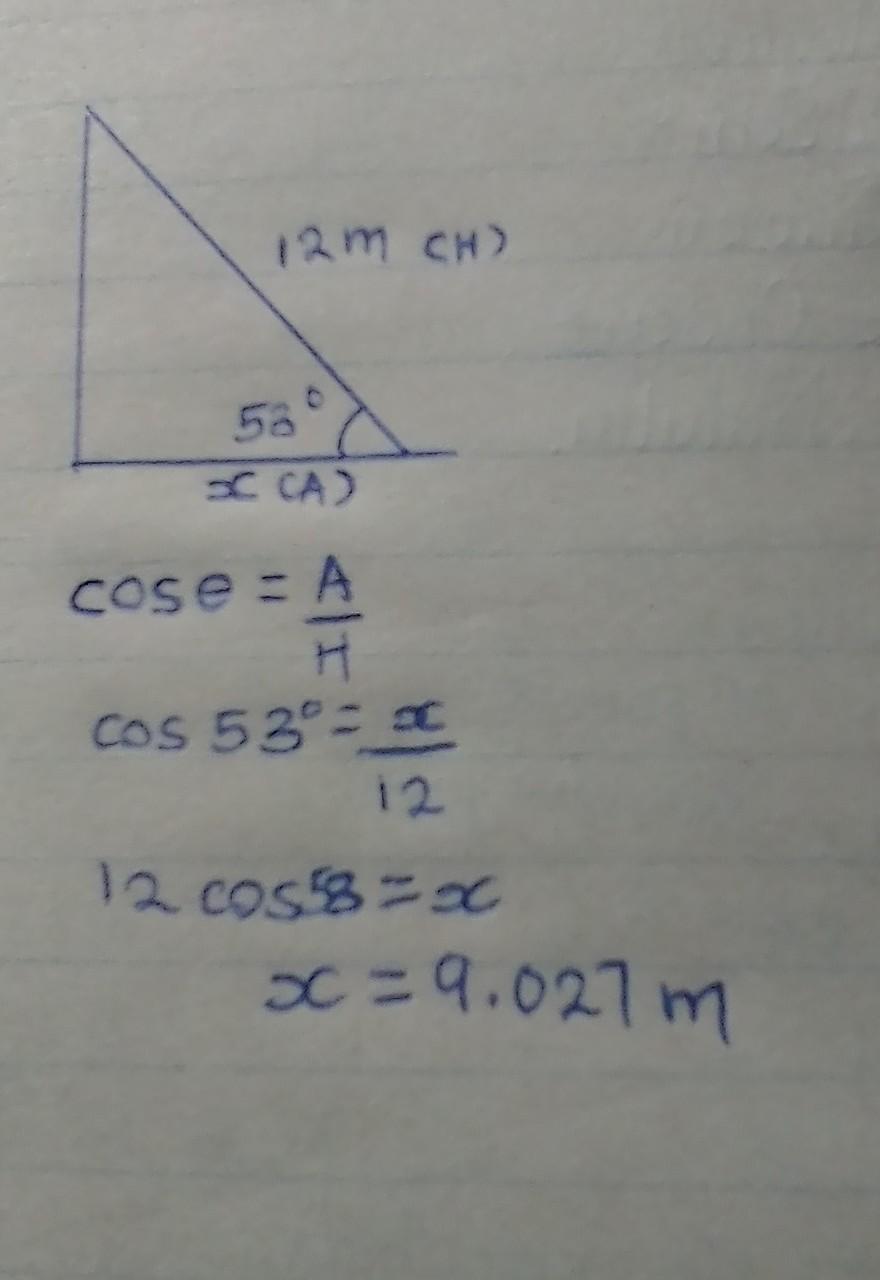 12m (H)
53°
x (A)
cos θ = A
H
cos 53° = x
12
12 cos53 = x
x = 9.027 m